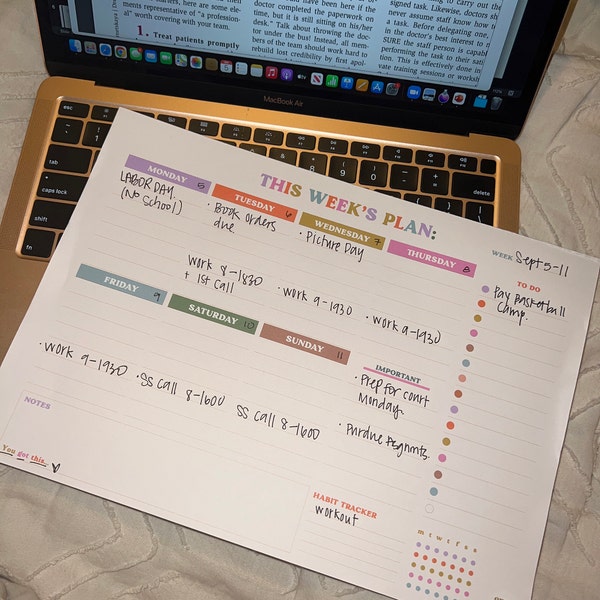 starters, here are some ele-
ments representative of "a profession-
al" worth covering with your team.
1. Treat patients promptly
have been here if the
doctor completed the paperwork on
time, but it is still sitting on his/her
desk." Talk about throwing the doc-
tor under the bus! Instead, all mem-
bers of the team should work hard to
rebuild lost credibility by first apol-
to carrying out the
signed task. Likewise, doctors sh
never assume staff know how to
a task. Before delegating one,
in the doctor's best interest to
SURE the staff person is capabl
performing the task to their sati
tion. This is effectively done in
vate training sessions or worksh
MacBook Air
esc
tab
caps lock
shift
fn
delete
THIS WEEK'S PLAN:
WEEK Sept 5-11
MONDAY 5
LABOR DAY
(No School)
TUESDAY 6
• Book orders
due
work 8-1830
+ 1st call
WEDNESDAY 7
• Picture Day
• work 9-1930
THURSDAY 8
• work 9-1930
FRIDAY 9
• work 9-1930
SATURDAY 10
• SS call 8-1600
SUNDAY 11
SS call 8-1600
TO DO
Pay Basketball
Camp.
IMPORTANT
• Prep for court
Monday
• Purdue Asgnmts.
NOTES
You got this.
HABIT TRACKER
workout
m t w t f s s